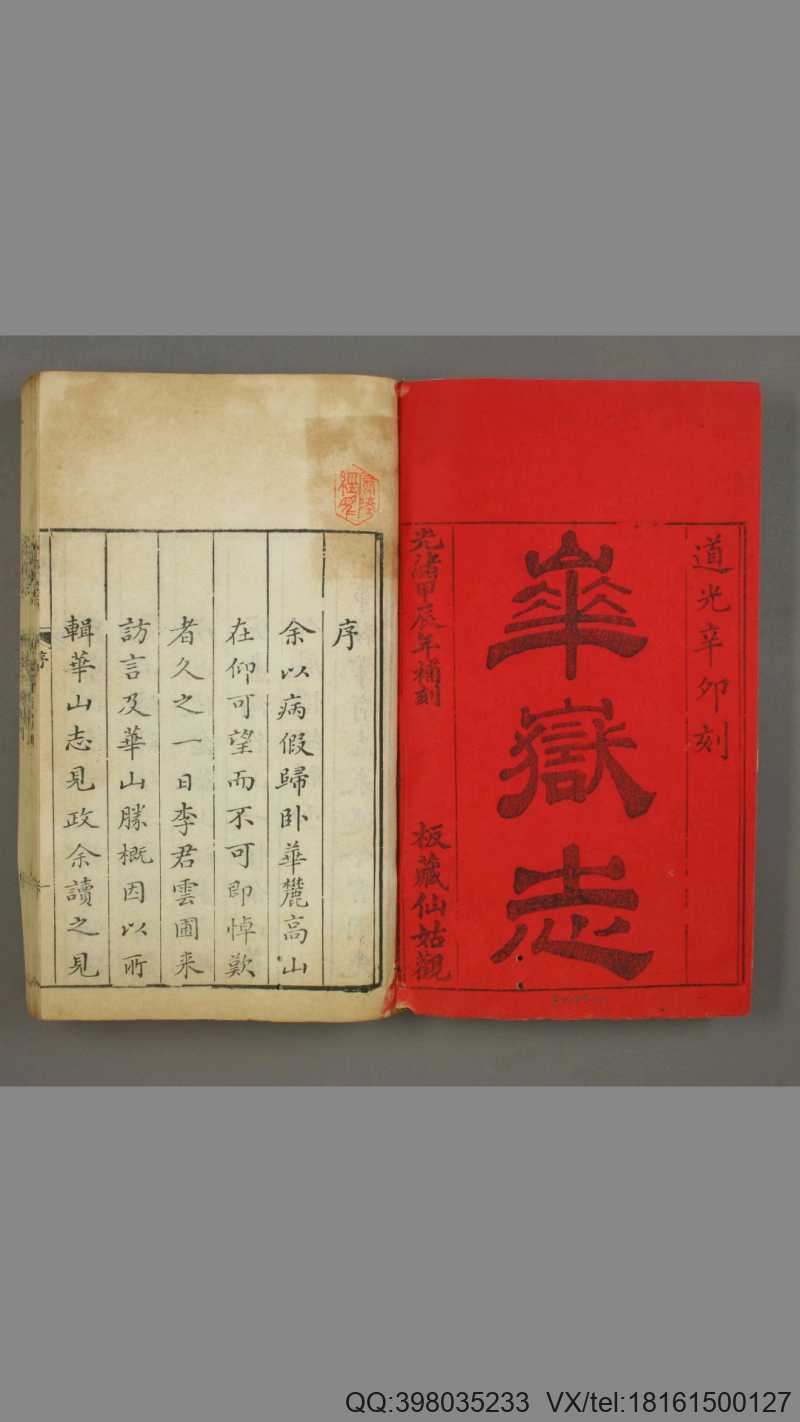 道光辛卯刻
華嶽志
光緒甲辰年補刻
板藏仙姑觀
序
余以病假歸卧華麓高山
在仰可望而不可即悼歎
者久之一日李君雲圃来
訪言及華山勝概因以所
輯華山志見政余讀之見
序
QQ:398035233 VX/tel:18161500127